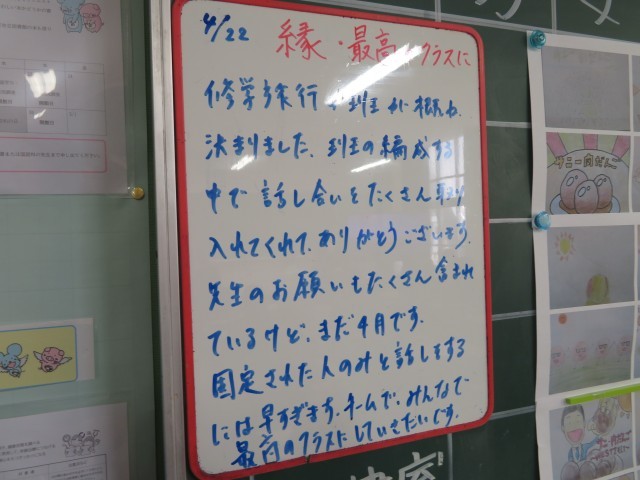 4/22
縁・最高のクラスに
修学旅行の班が概ね
決まりました。班の編成する
中で話し合いをたくさん取り
入れてくれて、ありがとうございます。
先生のお願いもたくさん含まれ
ているけど、まだ4月です。
固定された人のみと話しをする
には早すぎます。チームで、みんなで
最高のクラスにしていきたいです。